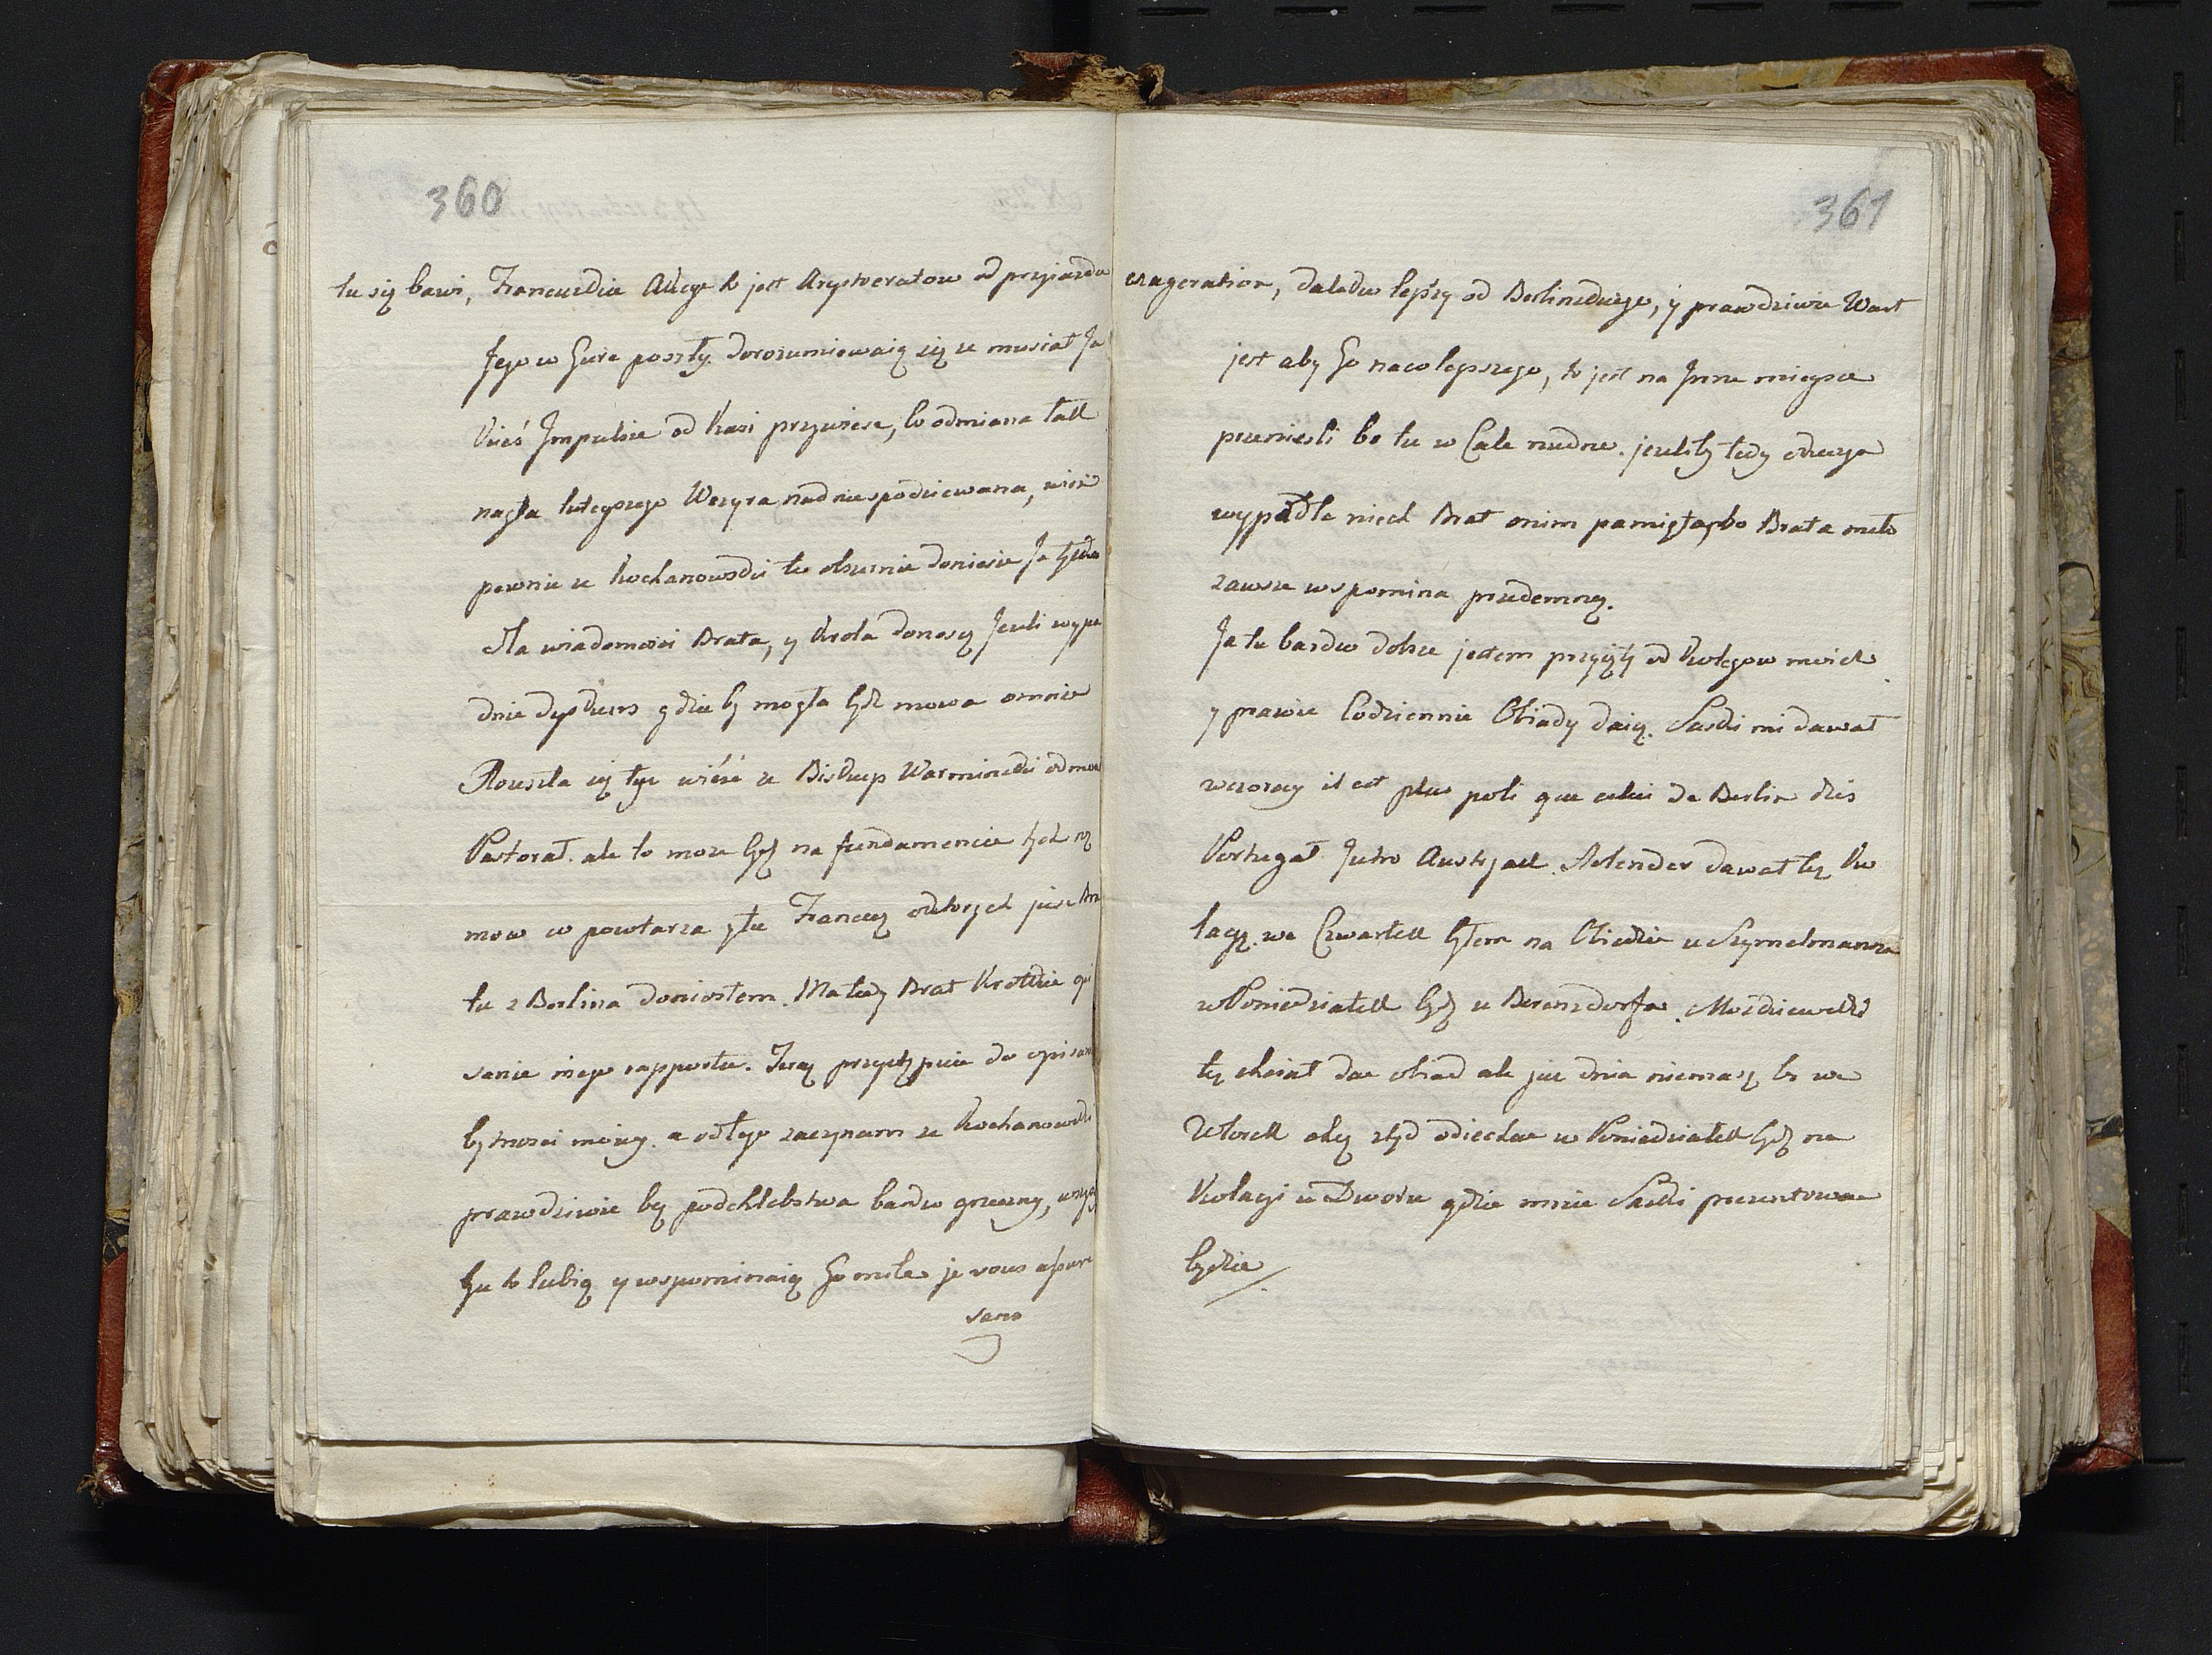 360
tu się bawi, Francuzkie Akcye to jest Arystokratow od przyiazdu
Jego w Gure poszły. dorozumiewaią się ze musiał Ja
kieś Impulsie od Kasi przywieść, bo odmiana tak
nagła tutejszego Wezyra nad niespodziewana, wiem
pewnie ze Kochanowski tu obszernie doniesie Ja tylko
dla wiadomosci Brata, y Krola donoszę Jezeli wypa
dnie dyskurs gdzie by mogła bydź mowa omnie
Rouszla się tyż wieść ze Biskup Warminski odmow
Pastorał. ale to moze bydź na fundamencie tych
mow co powtarza tu Francuz oktorych jusz
tu z Berlina doniosłem. Ma tedy Brat Krotkie opi
sanie mego rapportu. Teraz przystępuie do opisan
bytnosci moiey. a odtego zaczynam ze Kochanowski
prawdziwie bez podchlebstwa bardzo grzeczny, wszys
tzu to lubią y wspominaią Go mile je vous assure
sans
361
exageration, daleko lepszy od Berlinskiego, y prawdziwie Wart
jest aby Go naco lepszego, to jest na Inne mieysce
przeniesli bo tu w Cale nudno. jezeliby tedy okazya
wypadła niech Brat onim pamięta, bo Brata miło
zawsze wspomina przedemną.
Ja tu bardzo dobrze jestem przyięty od Kolegow moich
y prawie Codziennie Obiady daią. Saski mi dawał
wczoray il est plus poli que celui de Berlin dzis
Portugal Jutro Austryak. Holender dawał tyż Ko
lacyę. we Czwartek byłem na Obiedzie u Szymelmanna
w Poniedziałek bydź u Berensdorfa. Mozdziewski
tyż chciał dac obiad ale jusz dnia niemasz bo we
Wtorek chcę ztąd odiechac w Poniedziałek bydź na
Kolacyi u Dworu gdzie mnie Saski prezentowac
będzie